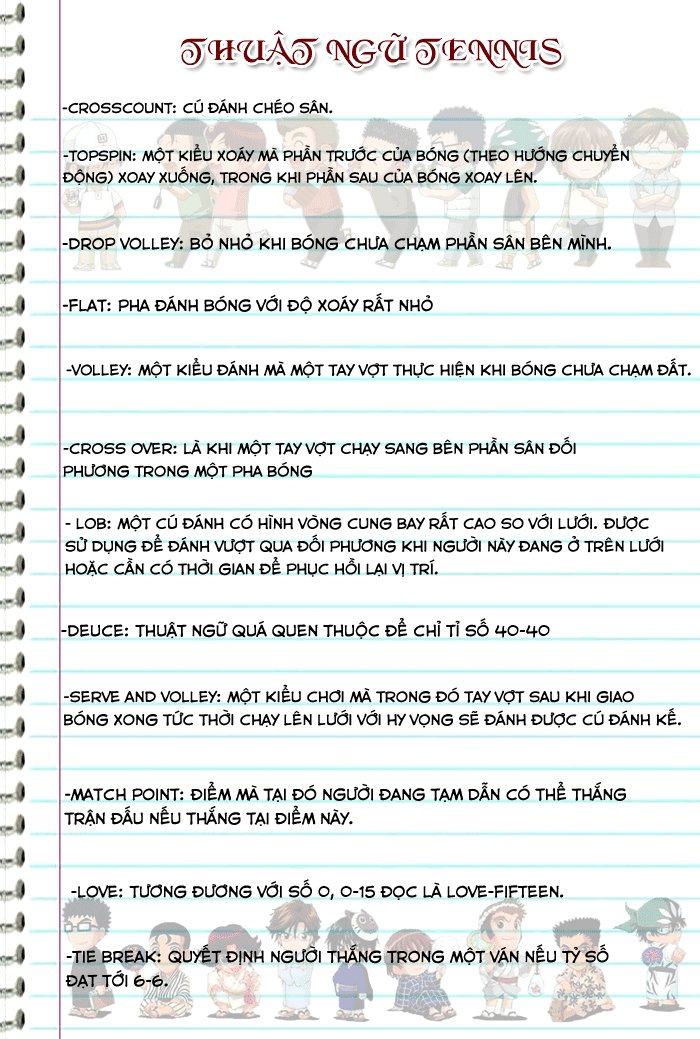 THUẬT NGỮ TENNIS
-CROSSCOUNT: CÚ ĐÁNH CHÉO SÂN.
-TOPSPIN: MỘT KIỂU XOÁY MÀ PHẦN TRƯỚC CỦA BÓNG (THEO HƯỚNG CHUYỂN
ĐỘNG) XOAY XUỐNG, TRONG KHI PHẦN SAU CỦA BÓNG XOAY LÊN.
-DROP VOLLEY: BỎ NHỎ KHI BÓNG CHƯA CHẠM PHẦN SÂN BÊN MÌNH.
-FLAT: PHA ĐÁNH BÓNG VỚI ĐỘ XOÁY RẤT NHỎ
-VOLLEY: MỘT KIỂU ĐÁNH MÀ MỘT TAY VỢT THỰC HIỆN KHI BÓNG CHƯA CHẠM ĐẤT.
-CROSS OVER: LÀ KHI MỘT TAY VỢT CHẠY SANG BÊN PHẦN SÂN ĐỐI
PHƯƠNG TRONG MỘT PHA BÓNG
- LOB: MỘT CÚ ĐÁNH CÓ HÌNH VÒNG CUNG BAY RẤT CAO SO VỚI LƯỚI. ĐƯỢC
SỬ DỤNG ĐỂ ĐÁNH VƯỢT QUA ĐỐI PHƯƠNG KHI NGƯỜI NÀY ĐANG Ở TRÊN LƯỚI
HOẶC CẦN CÓ THỜI GIAN ĐỂ PHỤC HỒI LẠI VỊ TRÍ.
-DEUCE: THUẬT NGỮ QUÁ QUEN THUỘC ĐỂ CHỈ TỈ SỐ 40-40
-SERVE AND VOLLEY: MỘT KIỂU CHƠI MÀ TRONG ĐÓ TAY VỢT SAU KHI GIAO
BÓNG XONG TỨC THỜI CHẠY LÊN LƯỚI VỚI HY VỌNG SẼ ĐÁNH ĐƯỢC CÚ ĐÁNH KẾ.
-MATCH POINT: ĐIỂM MÀ TẠI ĐÓ NGƯỜI ĐANG TẠM DẪN CÓ THỂ THẮNG
TRẬN ĐẤU NẾU THẮNG TẠI ĐIỂM NÀY.
-LOVE: TƯƠNG ĐƯƠNG VỚI SỐ 0, 0-15 ĐỌC LÀ LOVE-FIFTEEN.
-TIE BREAK: QUYẾT ĐỊNH NGƯỜI THẮNG TRONG MỘT VÁN NẾU TỶ SỐ
ĐẠT TỚI 6-6.